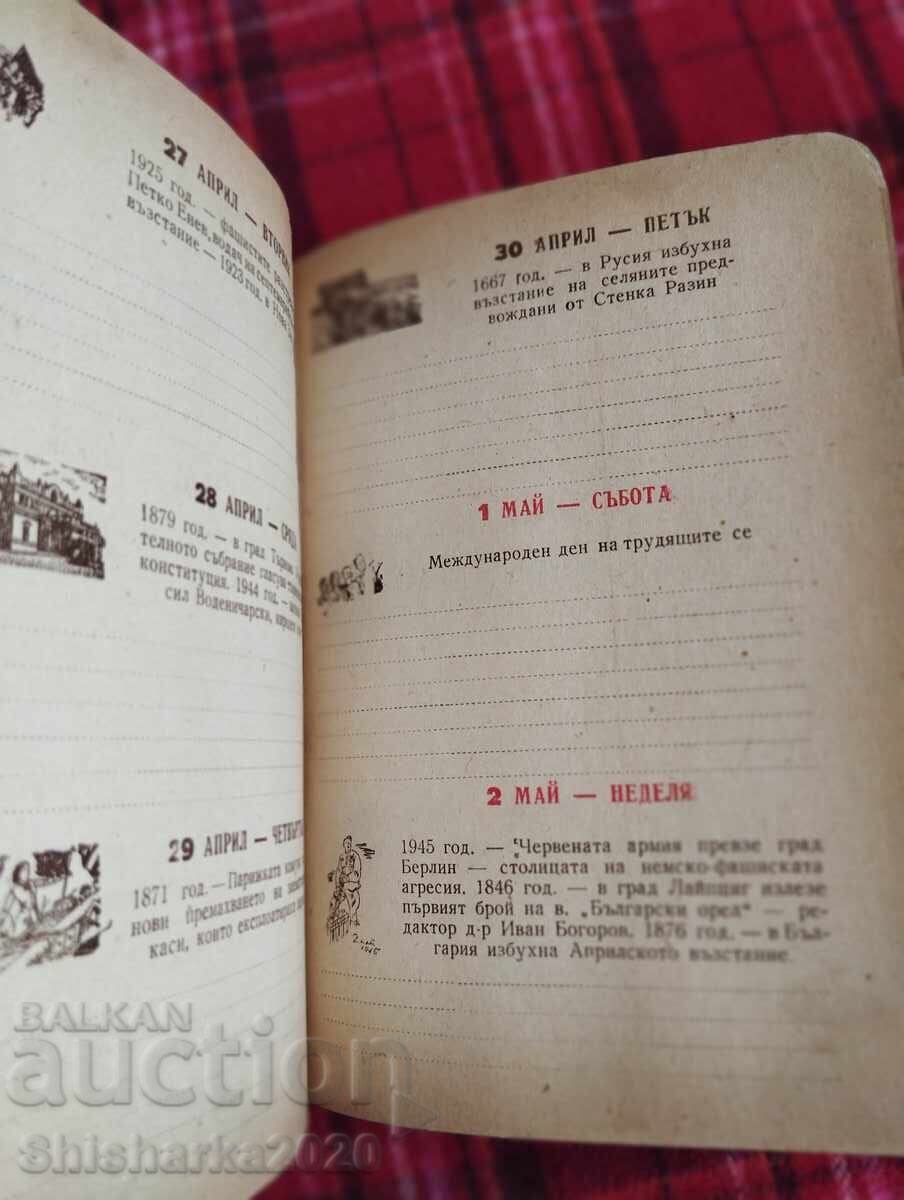 27 АПРИЛ —
1925 год. — фашистите
Петко Енев, водач на
възстание — 1923 год. в
28 АПРИЛ — СРЯДА
1879 год. — в град
телното събрание
конституция. 1944 год. —
сил Воденичарски,
29 АПРИЛ —
1871 год. — Парижката
нови премахването на
каси, които
30 АПРИЛ — ПЕТЪК
1667 год. — в Русия избухна
възстание на селяните пред-
вождани от Стенка Разин
1 МАЙ — СЪБОТА
Международен ден на трудящите се
2 МАЙ — НЕДЕЛЯ
1945 год. — Червената армия превзе град
Берлин — столицата на немско-фашистката
агресия. 1846 год. — в град Лайпциг излезе
първият брой на в. „Български орел" — ре-
дактор д-р Иван Богоров. 1876 год. — в Бъл-
гария избухна Априлското възстание.
2 май
1945
BALKAN
auction
Shisharka2020